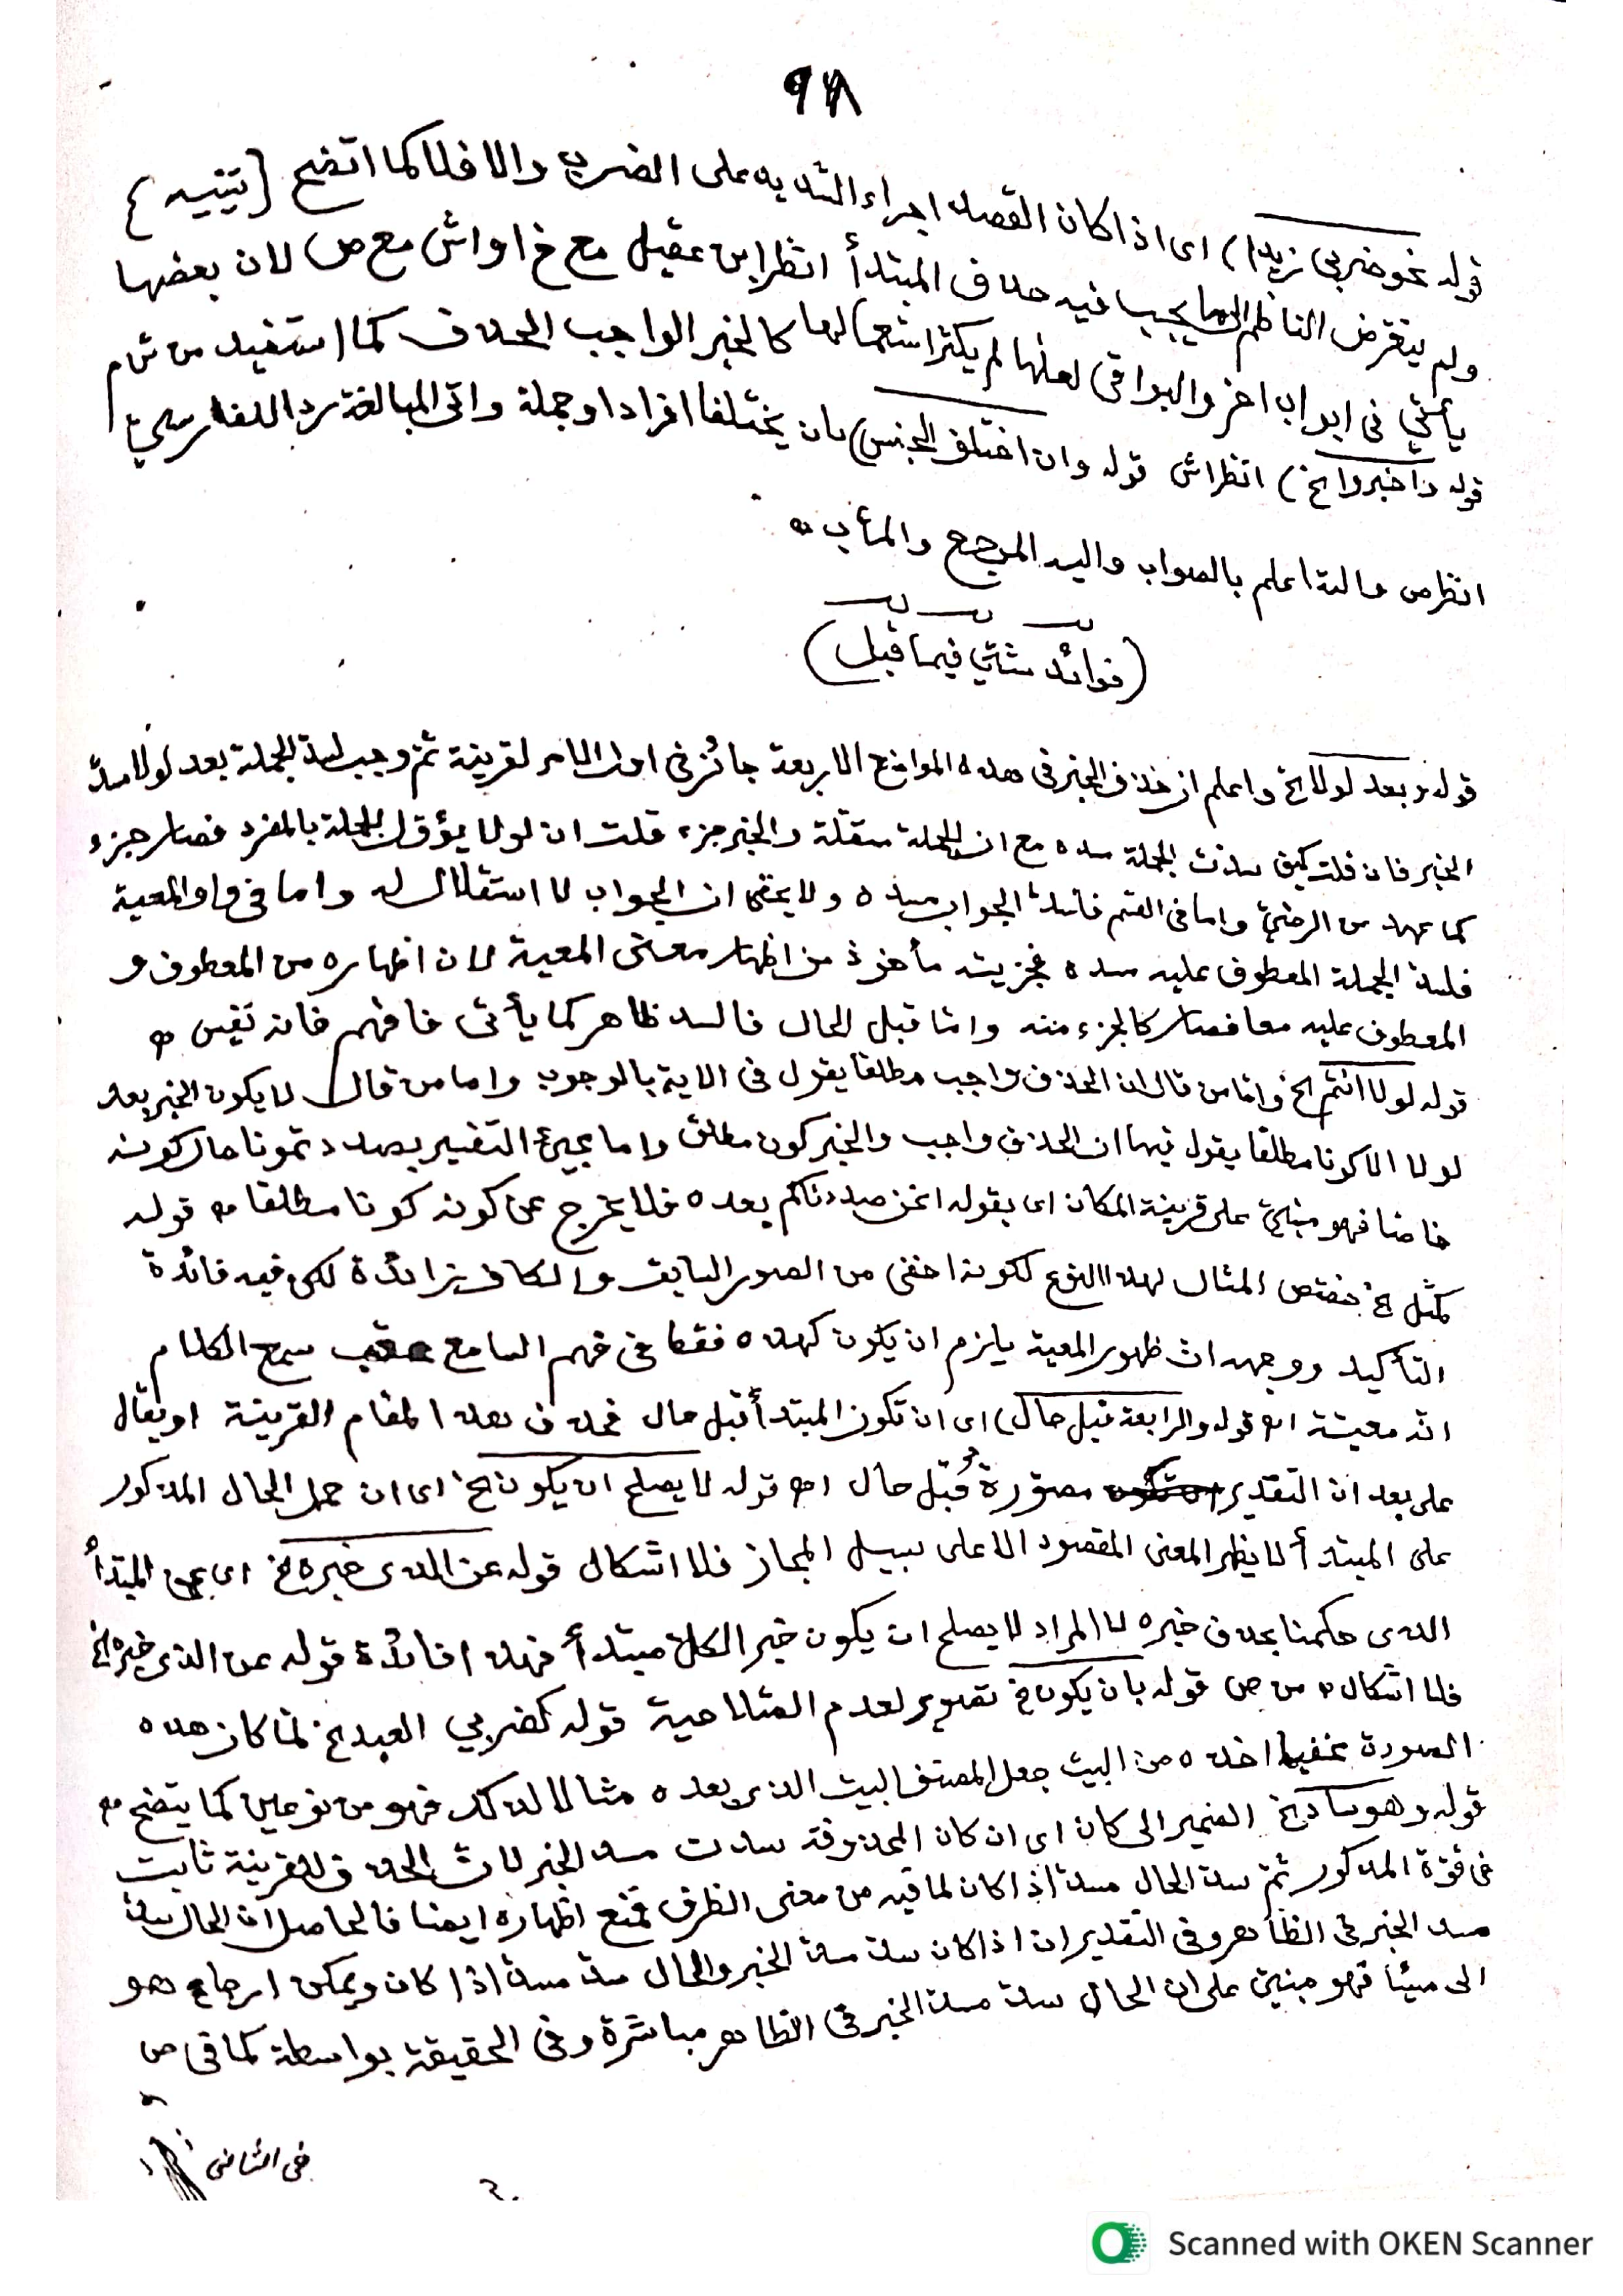 ٩٨
قوله نحو ضربى زيدا) اى اذا كان القصد اجراء الشديد على الضرب والا فلا كما اتضح [تنبيه]
ولم يتعرض الناظم لما يجب فيه حذف المبتدأ انظر ابن عقيل مع خ او اش مع ص لان بعضها
يأتي فى ابواب اخر والبواقى لعلها لم يكثر استعمالها كالخبر الواجب الحذف كما استفيد من ش م
قوله واخبروا الخ) انظر اش قوله وان اختلف الجنس) بان يختلفا افرادا وجملة واتى المبالغة ردا للفارسي
انظر ص والله اعلم بالصواب واليه المرجع والمآب
(فوائد شتى فيما قبل)
قوله وبعد لولا الخ واعلم ان حذف الخبر فى هذه المواضع الاربعة جائز فى اول الامر لقرينة ثم وجب لسد الجملة بعد لولا مسد
الخبر فان قلت كيف سدت الجملة مسده مع ان الجملة مستقلة والخبر جزء قلت ان لولا يؤول الجملة بالمفرد فصار جزء
كما عهد من الرضي واما فى القسم فلسد الجواب مسده ولا يخفى ان الجواب لا استقلال له واما فى واو المعية
فلسد الجملة المعطوف عليه مسده فجزيته مأخوذ من اظهار معنى المعية لان اظهاره من المعطوف و
المعطوف عليه معا فصار كالجزء منه واما قبل الحال فالسد ظاهر كما يأتى فافهم فانه نفيس
قوله لولا انتم الخ واما من قال ان الحذف واجب مطلقا يقول فى الاية بالوجوب واما من قال لا يكون الخبر بعد
لولا الا كونا مطلقا يقول فيها ان الحذف واجب والخبر كون مطلق واما مجيئ التفسير بصددتمونا حال كونه
خاصا فهو مبني على قرينة المكان اى بقوله انحن صددناكم بعده فلا يخرج عن كونه كونا مطلقا قوله
كمثل الخ خصص المثال لهذا النوع لكونه اخفى من الصور السابق والكاف زائدة لكن فيه فائدة
التأكيد ووجهه ان ظهور المعية يلزم ان يكون كهذه فقط فى فهم السامع عقب سمع الكلام
انه معيته اه قوله والرابعة قبل حال) اى ان تكون المبتدأ قبل حال فحذف هذا المقام القرينة او يقال
على بعد ان التقدير مصورة قبل حال اه قوله لا يصلح ان يكون الخ اى ان حمل الحال المذكور
على المبتدأ لا يظهر المعنى المقصود الا على سبيل المجاز فلا اشكال قوله عن الذى خبره الخ اى عن المبتدأ
الذى حكمنا بحذف خبره لا المراد لا يصلح ان يكون خبر الكل مبتدأ فهذا فائدة قوله عن الذى خبره الخ
فلا اشكال من ص قوله بان يكون الخ تصوير لعدم الصلاحية قوله كضربي العبد الخ لما كان هذه
الصورة مخفيا اخذه من البيت جعل المصنف البيت الذى بعده مثالا لذلك فهو من نوعين كما يتضح
قوله وهو ساد الخ الضمير الى كان اى ان كان المحذوفة سدت مسد الخبر لان الحذف لقرينة ثابت
فى قوة المذكور ثم سد الحال مسد اذا كان لما فيه من معنى الظرف فمنع اظهاره ايضا فالحاصل ان الحال سد
مسد الخبر فى الظاهر وفى التقدير ان اذا كان سد مسد الخبر والحال سد مسد اذا كان ويمكن ارجاع هو
الى مسيئا فهو مبني على ان الحال سد مسد الخبر فى الظاهر مباشرة وفى الحقيقة بواسطة كما فى ص
فى الثانى
Scanned with OKEN Scanner